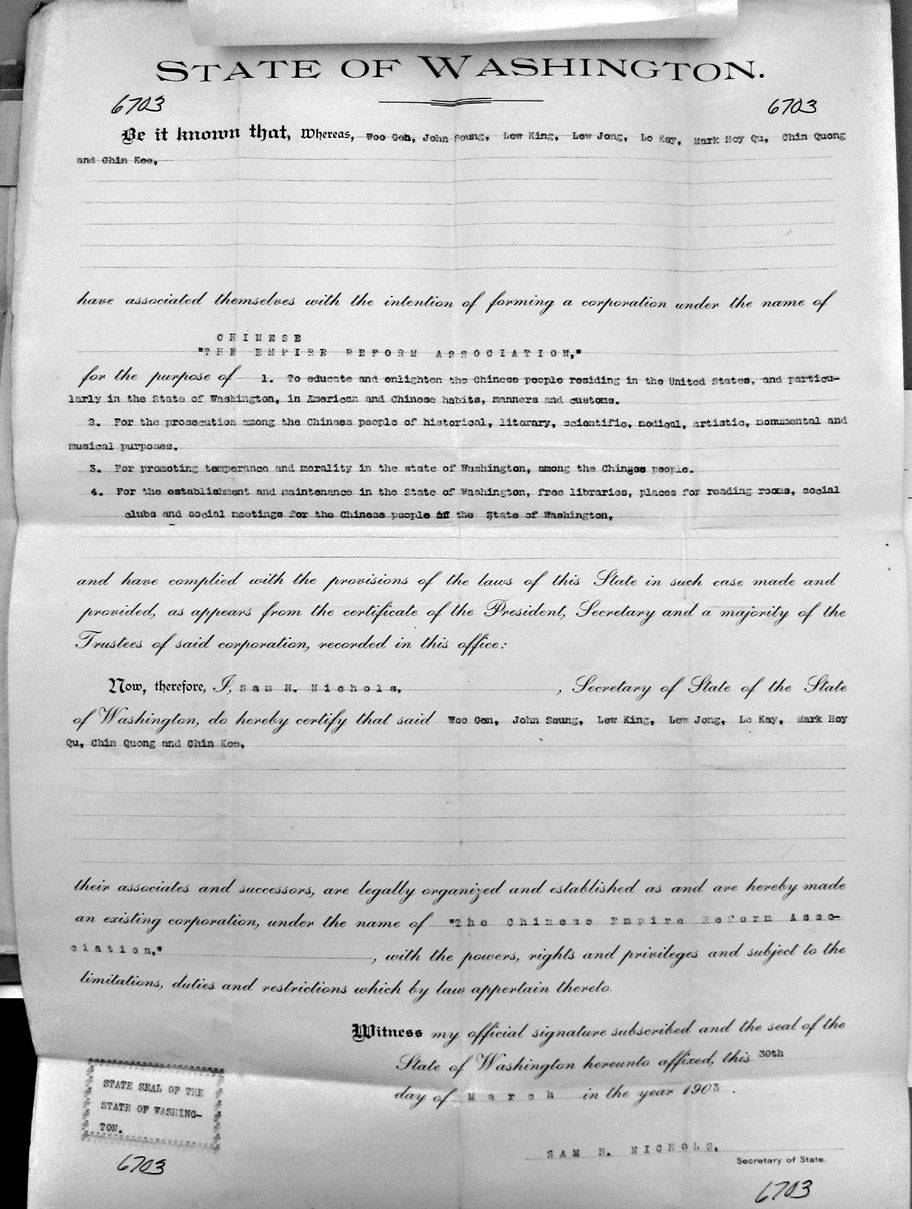 STATE OF WASHINGTON.
6703 6703
Be it known that, Whereas, Woo Gen, John Seung, Lew King, Lew Jong, Lo Kay, Mark Hoy Qu, Chin Quong
and Chin Kee,
have associated themselves with the intention of forming a corporation under the name of
CHINESE
"THE EMPIRE REFORM ASSOCIATION,"
for the purpose of 1. To educate and enlighten the Chinese people residing in the United States, and particu-
larly in the State of Washington, in American and Chinese habits, manners and customs.
2. For the prosecution among the Chinese people of historical, literary, scientific, medical, artistic, monumental and
musical purposes.
3. For promoting temperance and morality in the state of Washington, among the Chinese people.
4. For the establishment and maintenance in the State of Washington, free libraries, places for reading rooms, social
clubs and social meetings for the Chinese people in the State of Washington,
and have complied with the provisions of the laws of this State in such case made and
provided, as appears from the certificate of the President, Secretary and a majority of the
Trustees of said corporation, recorded in this office:
Now, therefore, I, Sam H. Nichols, , Secretary of State of the State
of Washington, do hereby certify that said Woo Gen, John Seung, Lew King, Lew Jong, Lo Kay, Mark Hoy
Qu, Chin Quong and Chin Kee,
their associates and successors, are legally organized and established as and are hereby made
an existing corporation, under the name of "The Chinese Empire Reform Asso-
ciation," , with the powers, rights and privileges and subject to the
limitations, duties and restrictions which by law appertain thereto.
Witness my official signature subscribed and the seal of the
State of Washington hereunto affixed, this 30th
day of March in the year 1903.
STATE SEAL OF THE
STATE OF WASHING-
TON.
SAM H. NICHOLS,
Secretary of State.
6703
6703